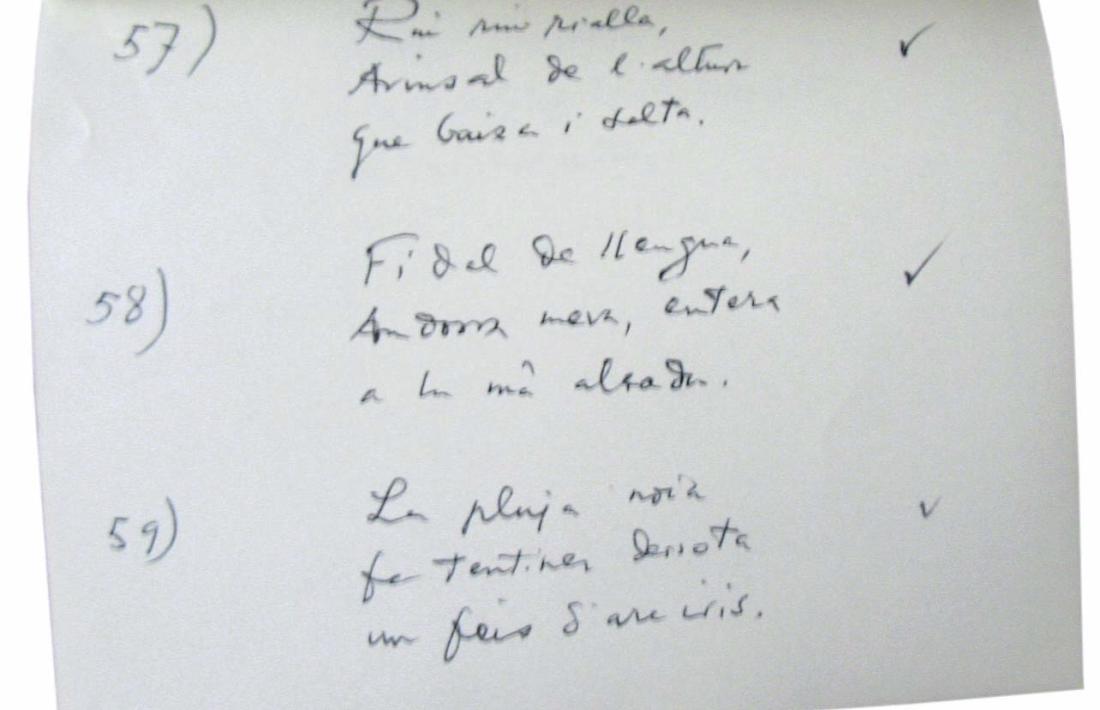 57) Riu riu rialla, ✓
Arinsal de l'altura
que baixa i salta.
58) Fidel de llengua, ✓
Andorra meva, entera
a la mà alçada.
59) La pluja noia ✓
fa tentines
un feix d'arc iris.